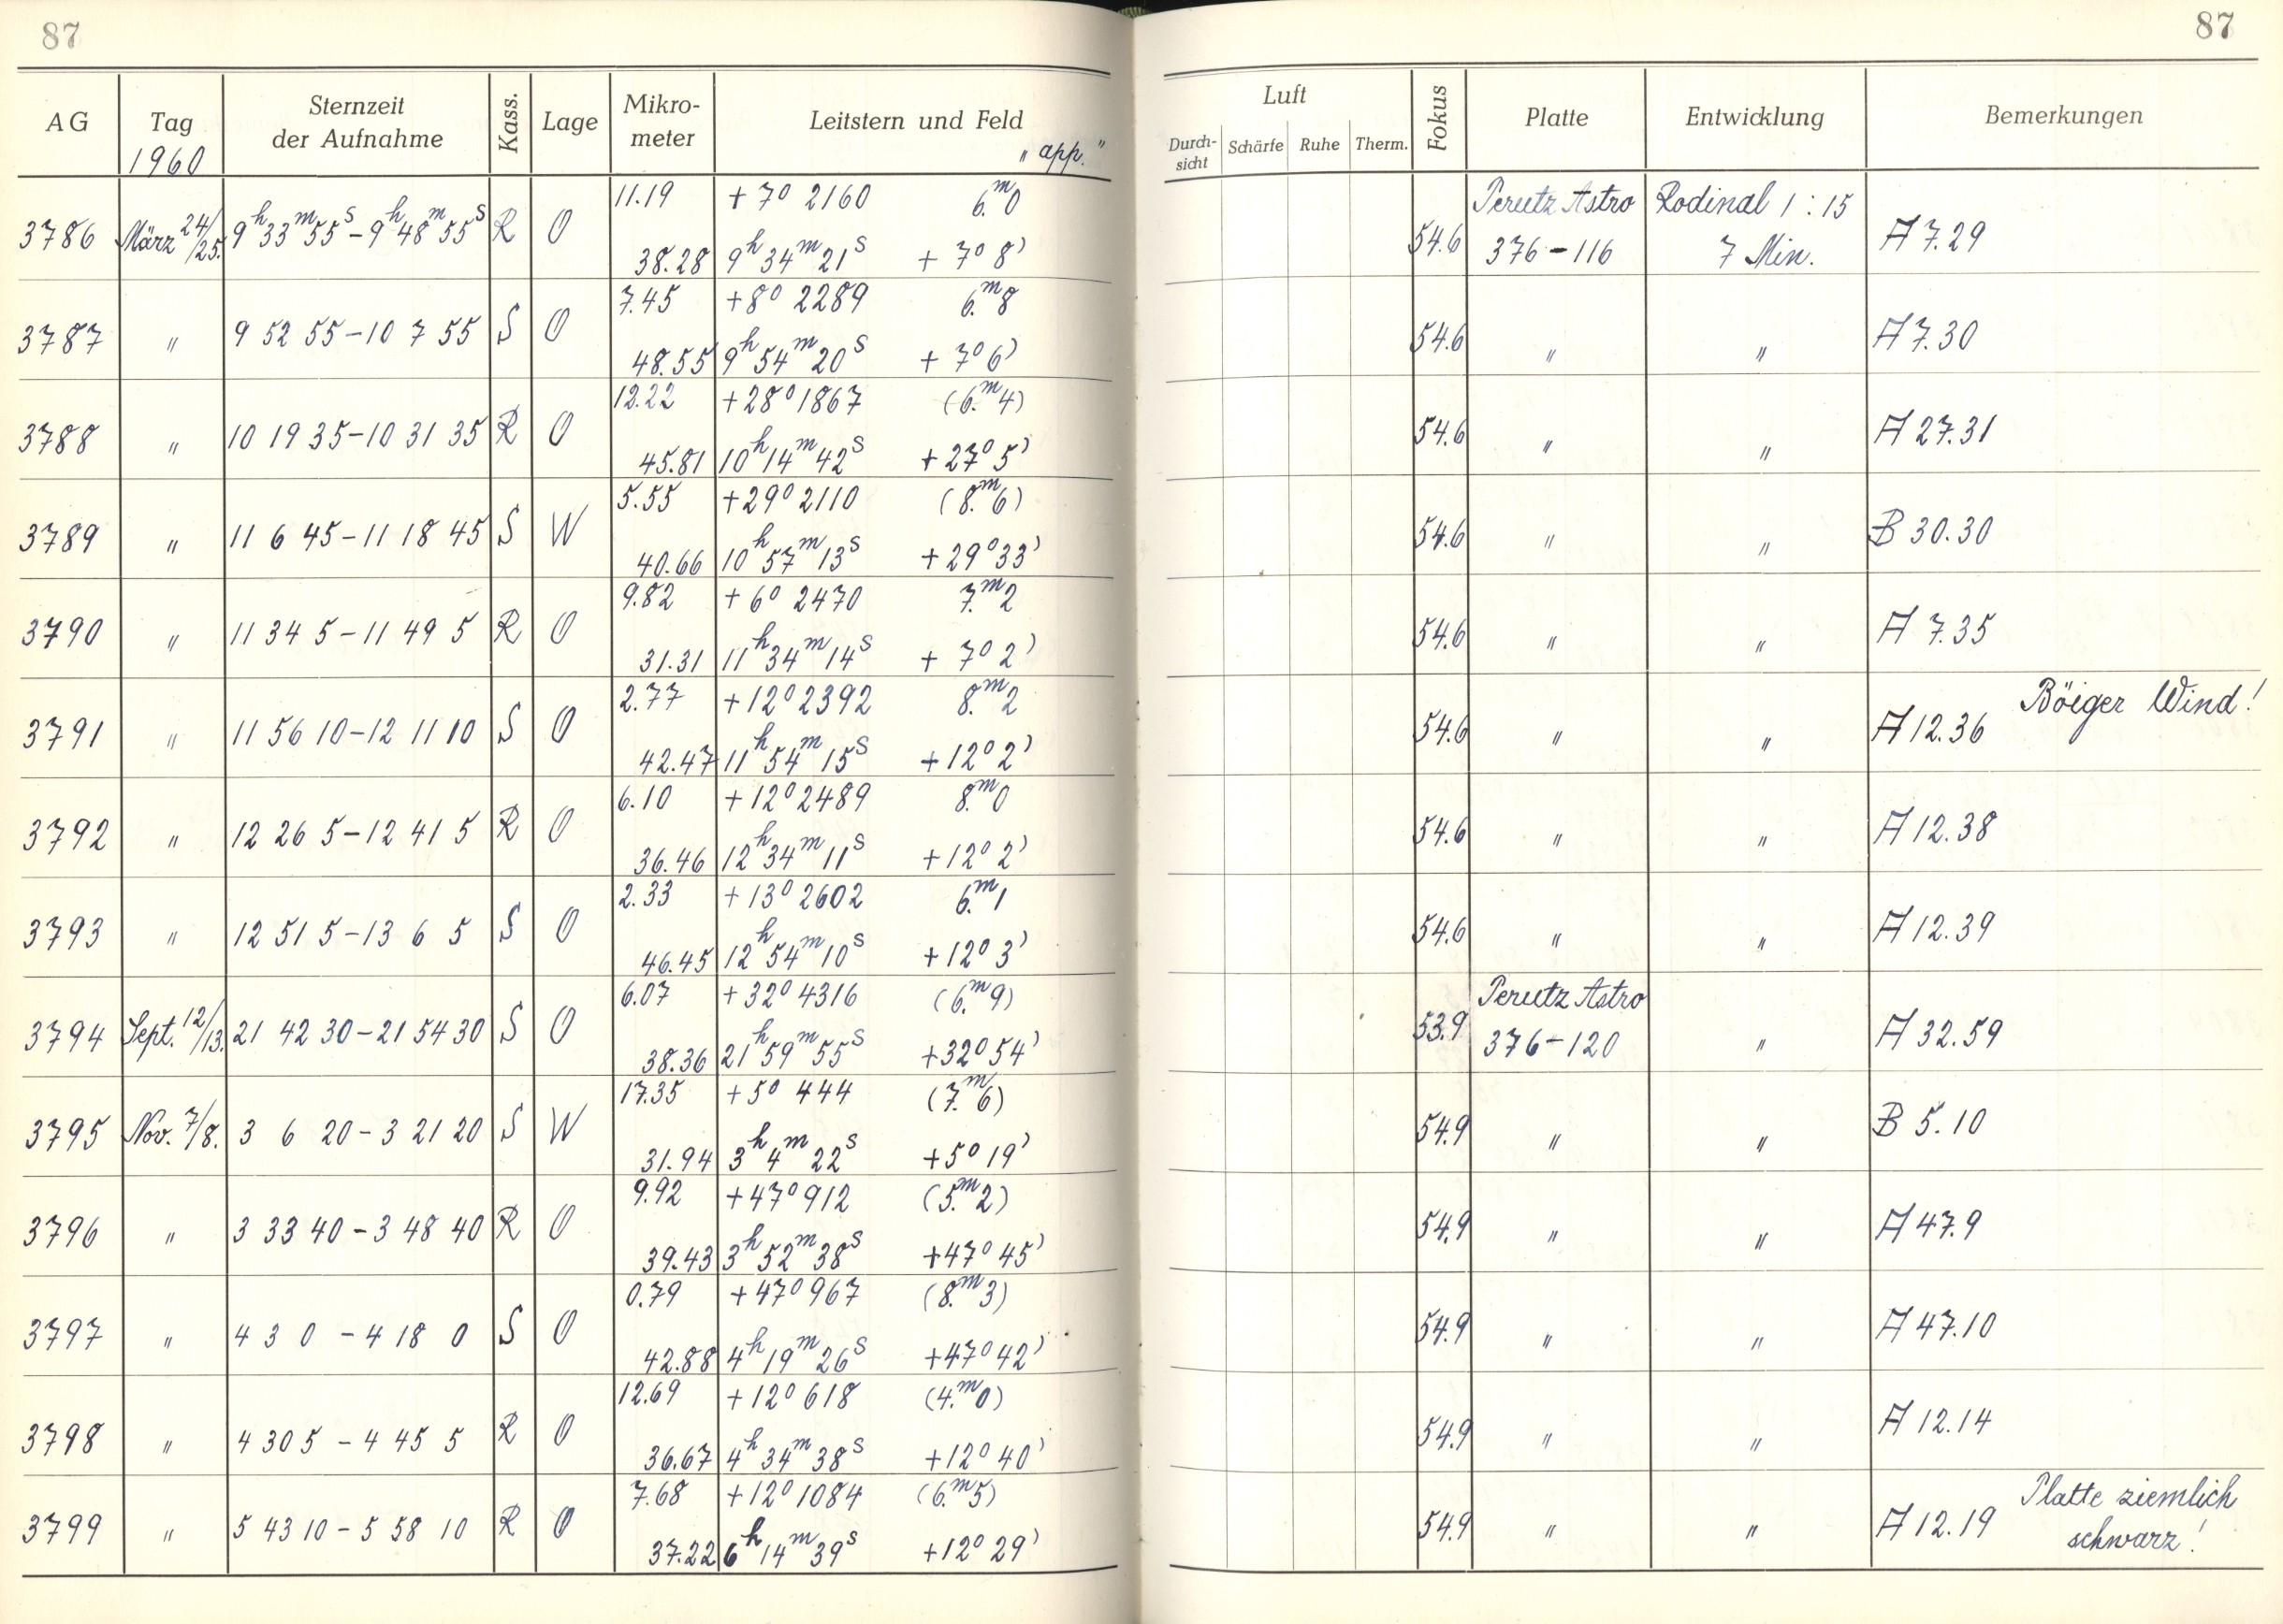 87
87
AG Tag 1960 Sternzeit der Aufnahme Kass. Lage Mikro-meter Leitstern und Feld „app.“
Luft Durch-sicht Schärfe Ruhe Therm. Fokus Platte Entwicklung Bemerkungen
11.19 +7° 2160 6.ᵐ0 Perutz Astro Rodinal 1:15
3786 März 24/25. 9ʰ33ᵐ55ˢ–9ʰ48ᵐ55ˢ R O 38.28 9ʰ34ᵐ21ˢ +7°8' 54.6 376–116 7 Min. A 7.29
7.45 +8° 2289 6.ᵐ8
3787 " 9 52 55–10 7 55 S O 48.55 9ʰ54ᵐ20ˢ +7°6' 54.6 " " A 7.30
12.22 +28° 1867 (6.ᵐ4)
3788 " 10 19 35–10 31 35 R O 45.81 10ʰ14ᵐ42ˢ +27°5' 54.6 " " A 27.31
5.55 +29° 2110 (8.ᵐ6)
3789 " 11 6 45–11 18 45 S W 40.66 10ʰ57ᵐ13ˢ +29°33' 54.6 " " B 30.30
9.82 +6° 2470 7.ᵐ2
3790 " 11 34 5–11 49 5 R O 31.31 11ʰ34ᵐ14ˢ +7°2' 54.6 " " A 7.35
2.77 +12° 2392 8.ᵐ2 Böiger Wind!
3791 " 11 56 10–12 11 10 S O 42.47 11ʰ54ᵐ15ˢ +12°2' 54.6 " " A 12.36
6.10 +12° 2489 8.ᵐ0
3792 " 12 26 5–12 41 5 R O 36.46 12ʰ34ᵐ11ˢ +12°2' 54.6 " " A 12.38
2.33 +13° 2602 6.ᵐ1
3793 " 12 51 5–13 6 5 S O 46.45 12ʰ54ᵐ10ˢ +12°3' 54.6 " " A 12.39
6.07 +32° 4316 (6.ᵐ9) Perutz Astro
3794 Sept. 12/13. 21 42 30–21 54 30 S O 38.36 21ʰ59ᵐ55ˢ +32°54' 53.9 376–120 " A 32.59
17.35 +5° 444 (7.ᵐ6)
3795 Nov. 7/8. 3 6 20–3 21 20 S W 31.94 3ʰ4ᵐ22ˢ +5°19' 54.9 " " B 5.10
9.92 +47° 912 (5.ᵐ2)
3796 " 3 33 40–3 48 40 R O 39.43 3ʰ52ᵐ38ˢ +47°45' 54.9 " " A 47.9
0.79 +47° 967 (8.ᵐ3)
3797 " 4 3 0–4 18 0 S O 42.88 4ʰ19ᵐ26ˢ +47°42' 54.9 " " A 47.10
12.69 +12° 618 (4.ᵐ0)
3798 " 4 30 5–4 45 5 R O 36.67 4ʰ34ᵐ38ˢ +12°40' 54.9 " " A 12.14
7.68 +12° 1084 (6.ᵐ5) Platte ziemlich
3799 " 5 43 10–5 58 10 R O 37.22 6ʰ14ᵐ39ˢ +12°29' 54.9 " " A 12.19 schwarz!